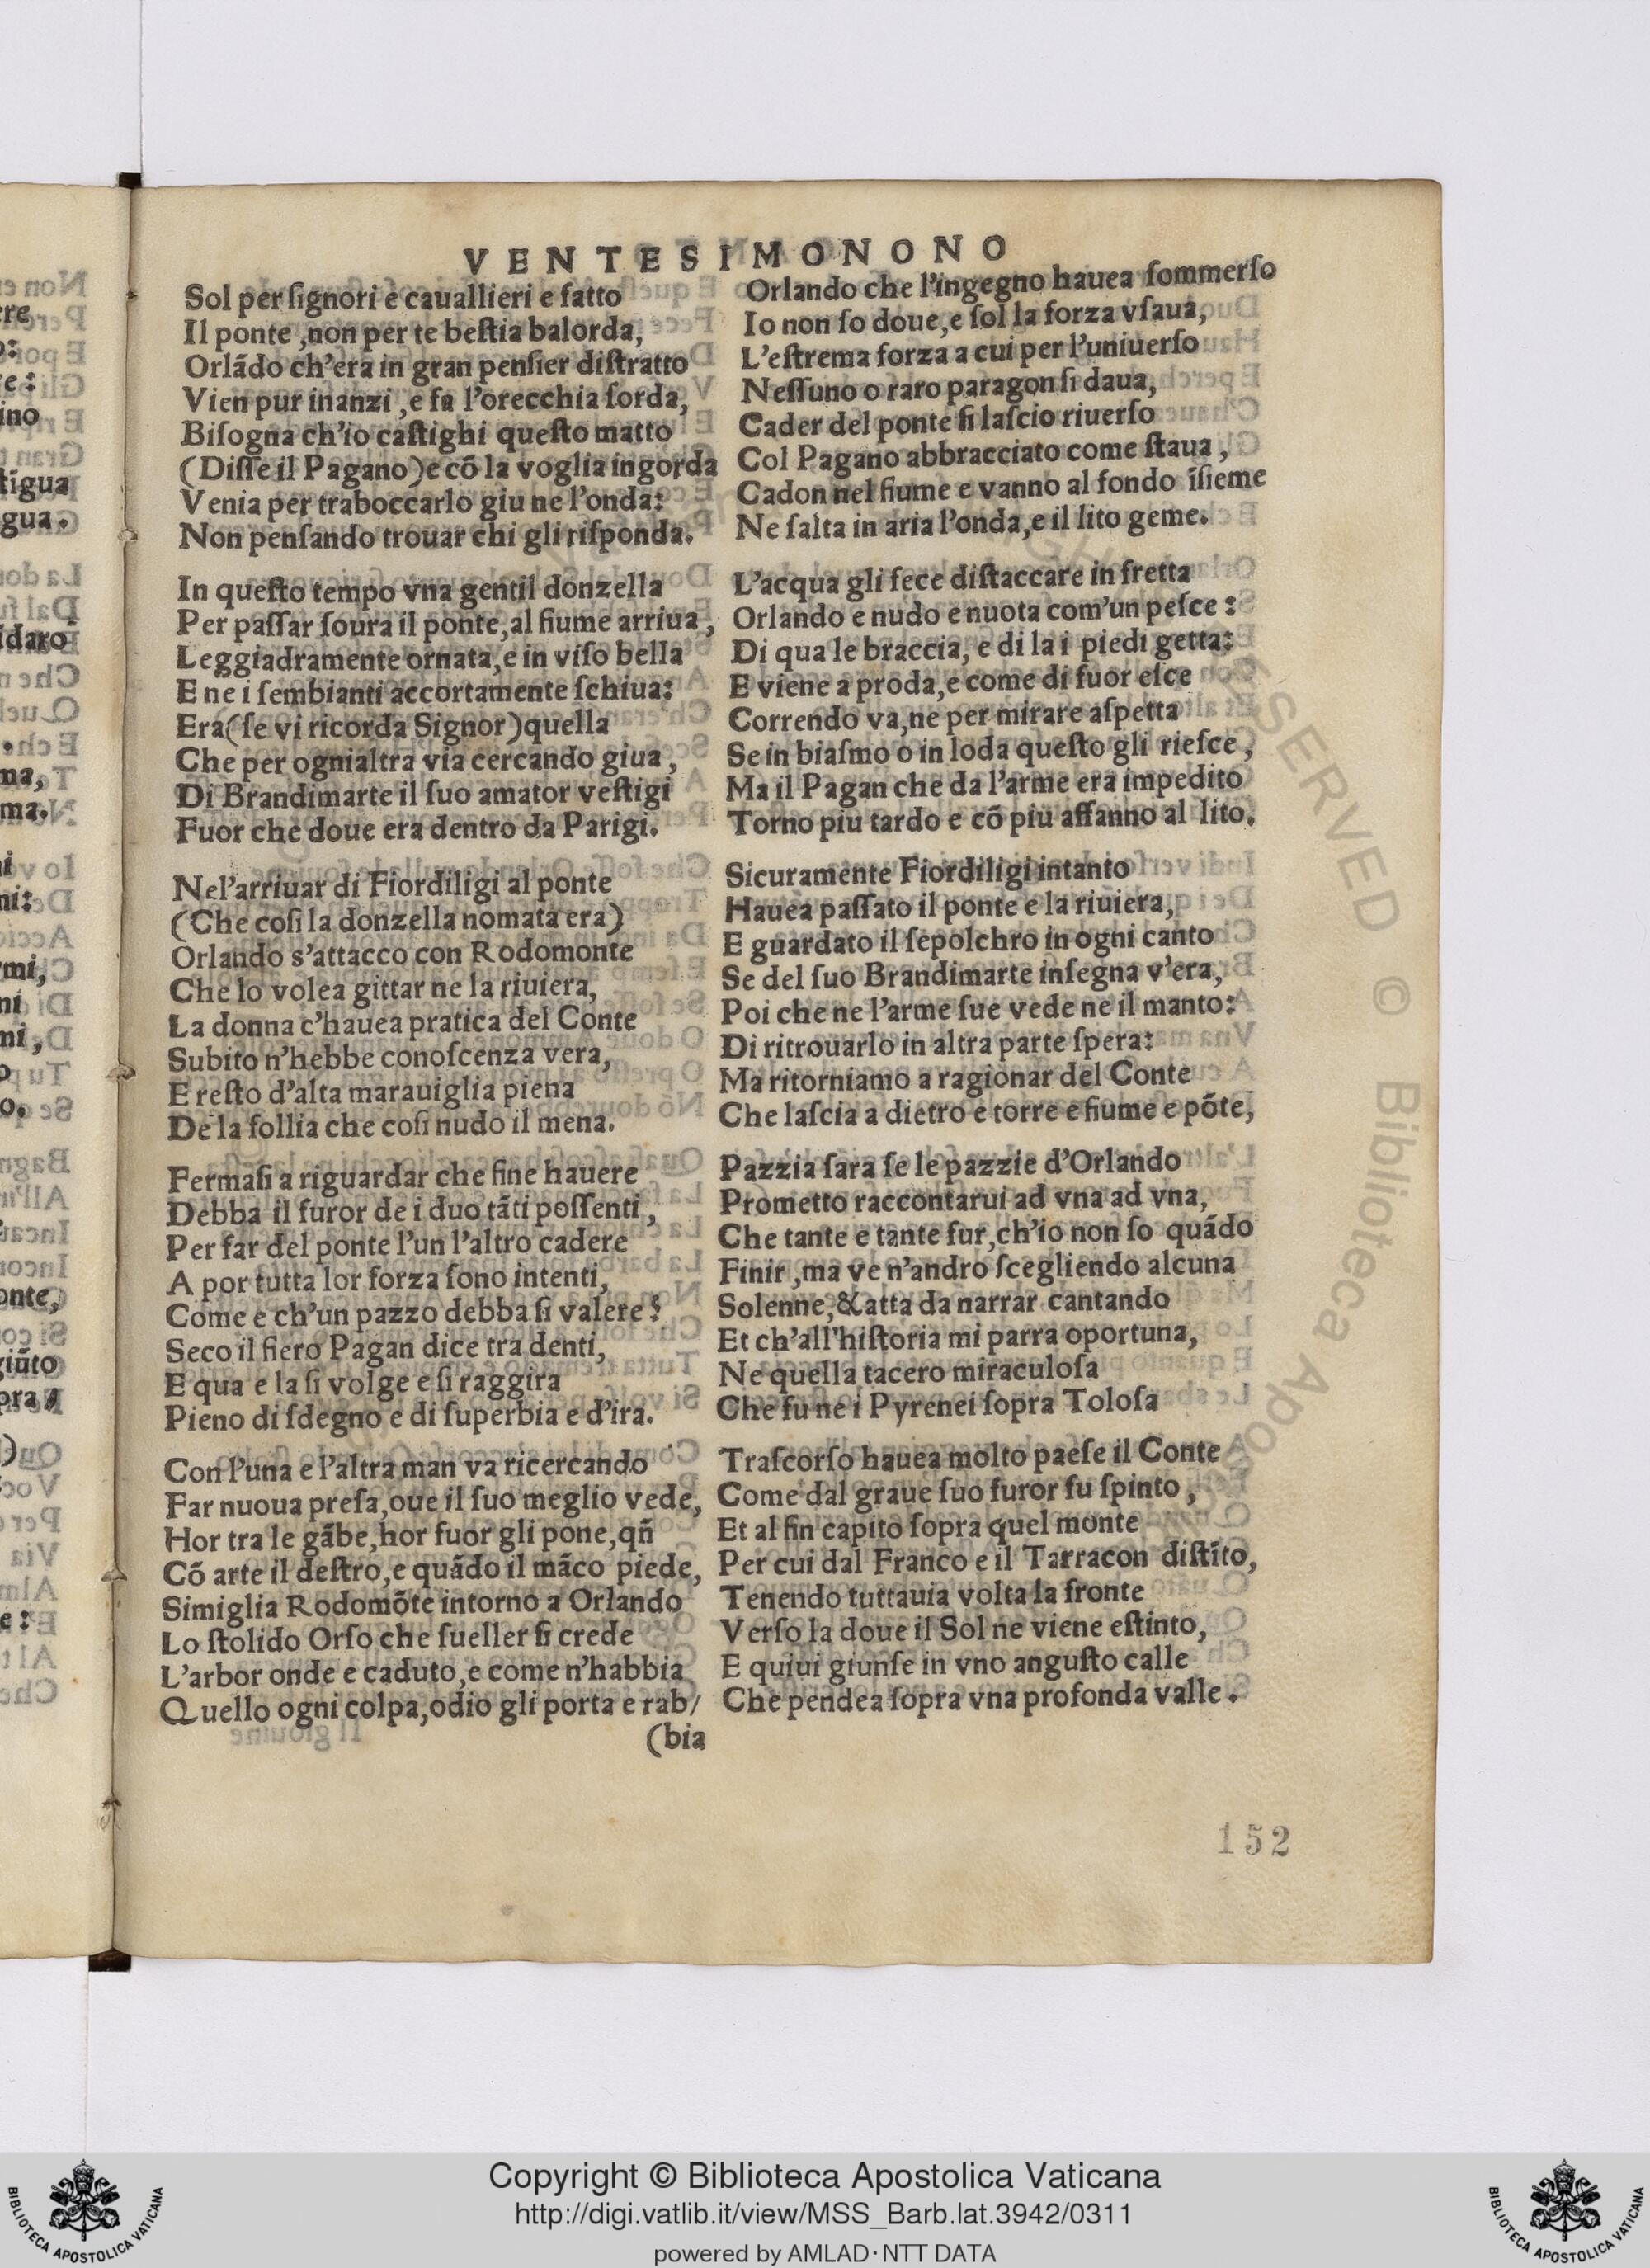 VENTESIMONONO
Sol per ſignori e cauallieri e fatto
Il ponte ,non per te beſtia balorda,
Orlãdo ch'era in gran penſier diſtratto
Vien pur inanzi ,e fa l'orecchia ſorda,
Biſogna ch'io caſtighi queſto matto
(Diſſe il Pagano)e cõ la voglia ingorda
Venia per traboccarlo giu ne l'onda:
Non penſando trouar chi gli riſponda.
In queſto tempo vna gentil donzella
Per paſſar ſoura il ponte,al fiume arriua,
Leggiadramente ornata,e in viſo bella
E ne i ſembianti accortamente ſchiua:
Era(ſe vi ricorda Signor)quella
Che per ognialtra via cercando giua,
Di Brandimarte il ſuo amator veſtigi
Fuor che doue era dentro da Parigi.
Nel'arriuar di Fiordiligi al ponte
(Che coſi la donzella nomata era)
Orlando s'attacco con Rodomonte
Che lo volea gittar ne la riuiera,
La donna c'hauea pratica del Conte
Subito n'hebbe conoſcenza vera,
E reſto d'alta marauiglia piena
De la follia che coſi nudo il mena.
Fermaſi a riguardar che fine hauere
Debba il furor de i duo tãti poſſenti,
Per far del ponte l'un l'altro cadere
A por tutta lor forza ſono intenti,
Come e ch'un pazzo debba ſi valere?
Seco il fiero Pagan dice tra denti,
E qua e la ſi volge e ſi raggira
Pieno di ſdegno e di ſuperbia e d'ira.
Con l'una e l'altra man va ricercando
Far nuoua preſa,oue il ſuo meglio vede,
Hor tra le gãbe,hor fuor gli pone,qñ
Cõ arte il deſtro,e quãdo il mãco piede,
Simiglia Rodomõte intorno a Orlando
Lo ſtolido Orſo che ſueller ſi crede
L'arbor onde e caduto,e come n'habbia
Quello ogni colpa,odio gli porta e rab/
(bia
Orlando che l'ingegno hauea ſommerſo
Io non ſo doue,e ſol la forza vſaua,
L'eſtrema forza a cui per l'uniuerſo
Neſſuno o raro paragon ſi daua,
Cader del ponte ſi laſcio riuerſo
Col Pagano abbracciato come ſtaua,
Cadon nel fiume e vanno al fondo ĩſieme
Ne ſalta in aria l'onda,e il lito geme.
L'acqua gli fece diſtaccare in fretta
Orlando e nudo e nuota com'un peſce:
Di qua le braccia, e di la i piedi getta:
E viene a proda,e come di fuor eſce
Correndo va,ne per mirare aſpetta
Se in biaſmo o in loda queſto gli rieſce,
Ma il Pagan che da l'arme era impedito
Torno piu tardo e cõ piu affanno al lito.
Sicuramente Fiordiligi intanto
Hauea paſſato il ponte e la riuiera,
E guardato il ſepolchro in ogni canto
Se del ſuo Brandimarte inſegna v'era,
Poi che ne l'arme ſue vede ne il manto:
Di ritrouarlo in altra parte ſpera:
Ma ritorniamo a ragionar del Conte
Che laſcia a dietro e torre e fiume e põte,
Pazzia ſara ſe le pazzie d'Orlando
Prometto raccontarui ad vna ad vna,
Che tante e tante fur,ch'io non ſo quãdo
Finir ,ma ve n'andro ſcegliendo alcuna
Solenne,& atta da narrar cantando
Et ch'all'hiſtoria mi parra oportuna,
Ne quella tacero miraculoſa
Che fu ne i Pyrenei ſopra Toloſa
Traſcorſo hauea molto paeſe il Conte
Come dal graue ſuo furor fu ſpinto,
Et al fin capito ſopra quel monte
Per cui dal Franco e il Tarracon diſtĩto,
Tenendo tuttauia volta la fronte
Verſo la doue il Sol ne viene eſtinto,
E quiui giunſe in vno anguſto calle
Che pendea ſopra vna profonda valle.
152
Copyright © Biblioteca Apostolica Vaticana
http://digi.vatlib.it/view/MSS_Barb.lat.3942/0311
powered by AMLAD·NTT DATA
BIBLIOTECA APOSTOLICA VATICANA
BIBLIOTECA APOSTOLICA VATICANA